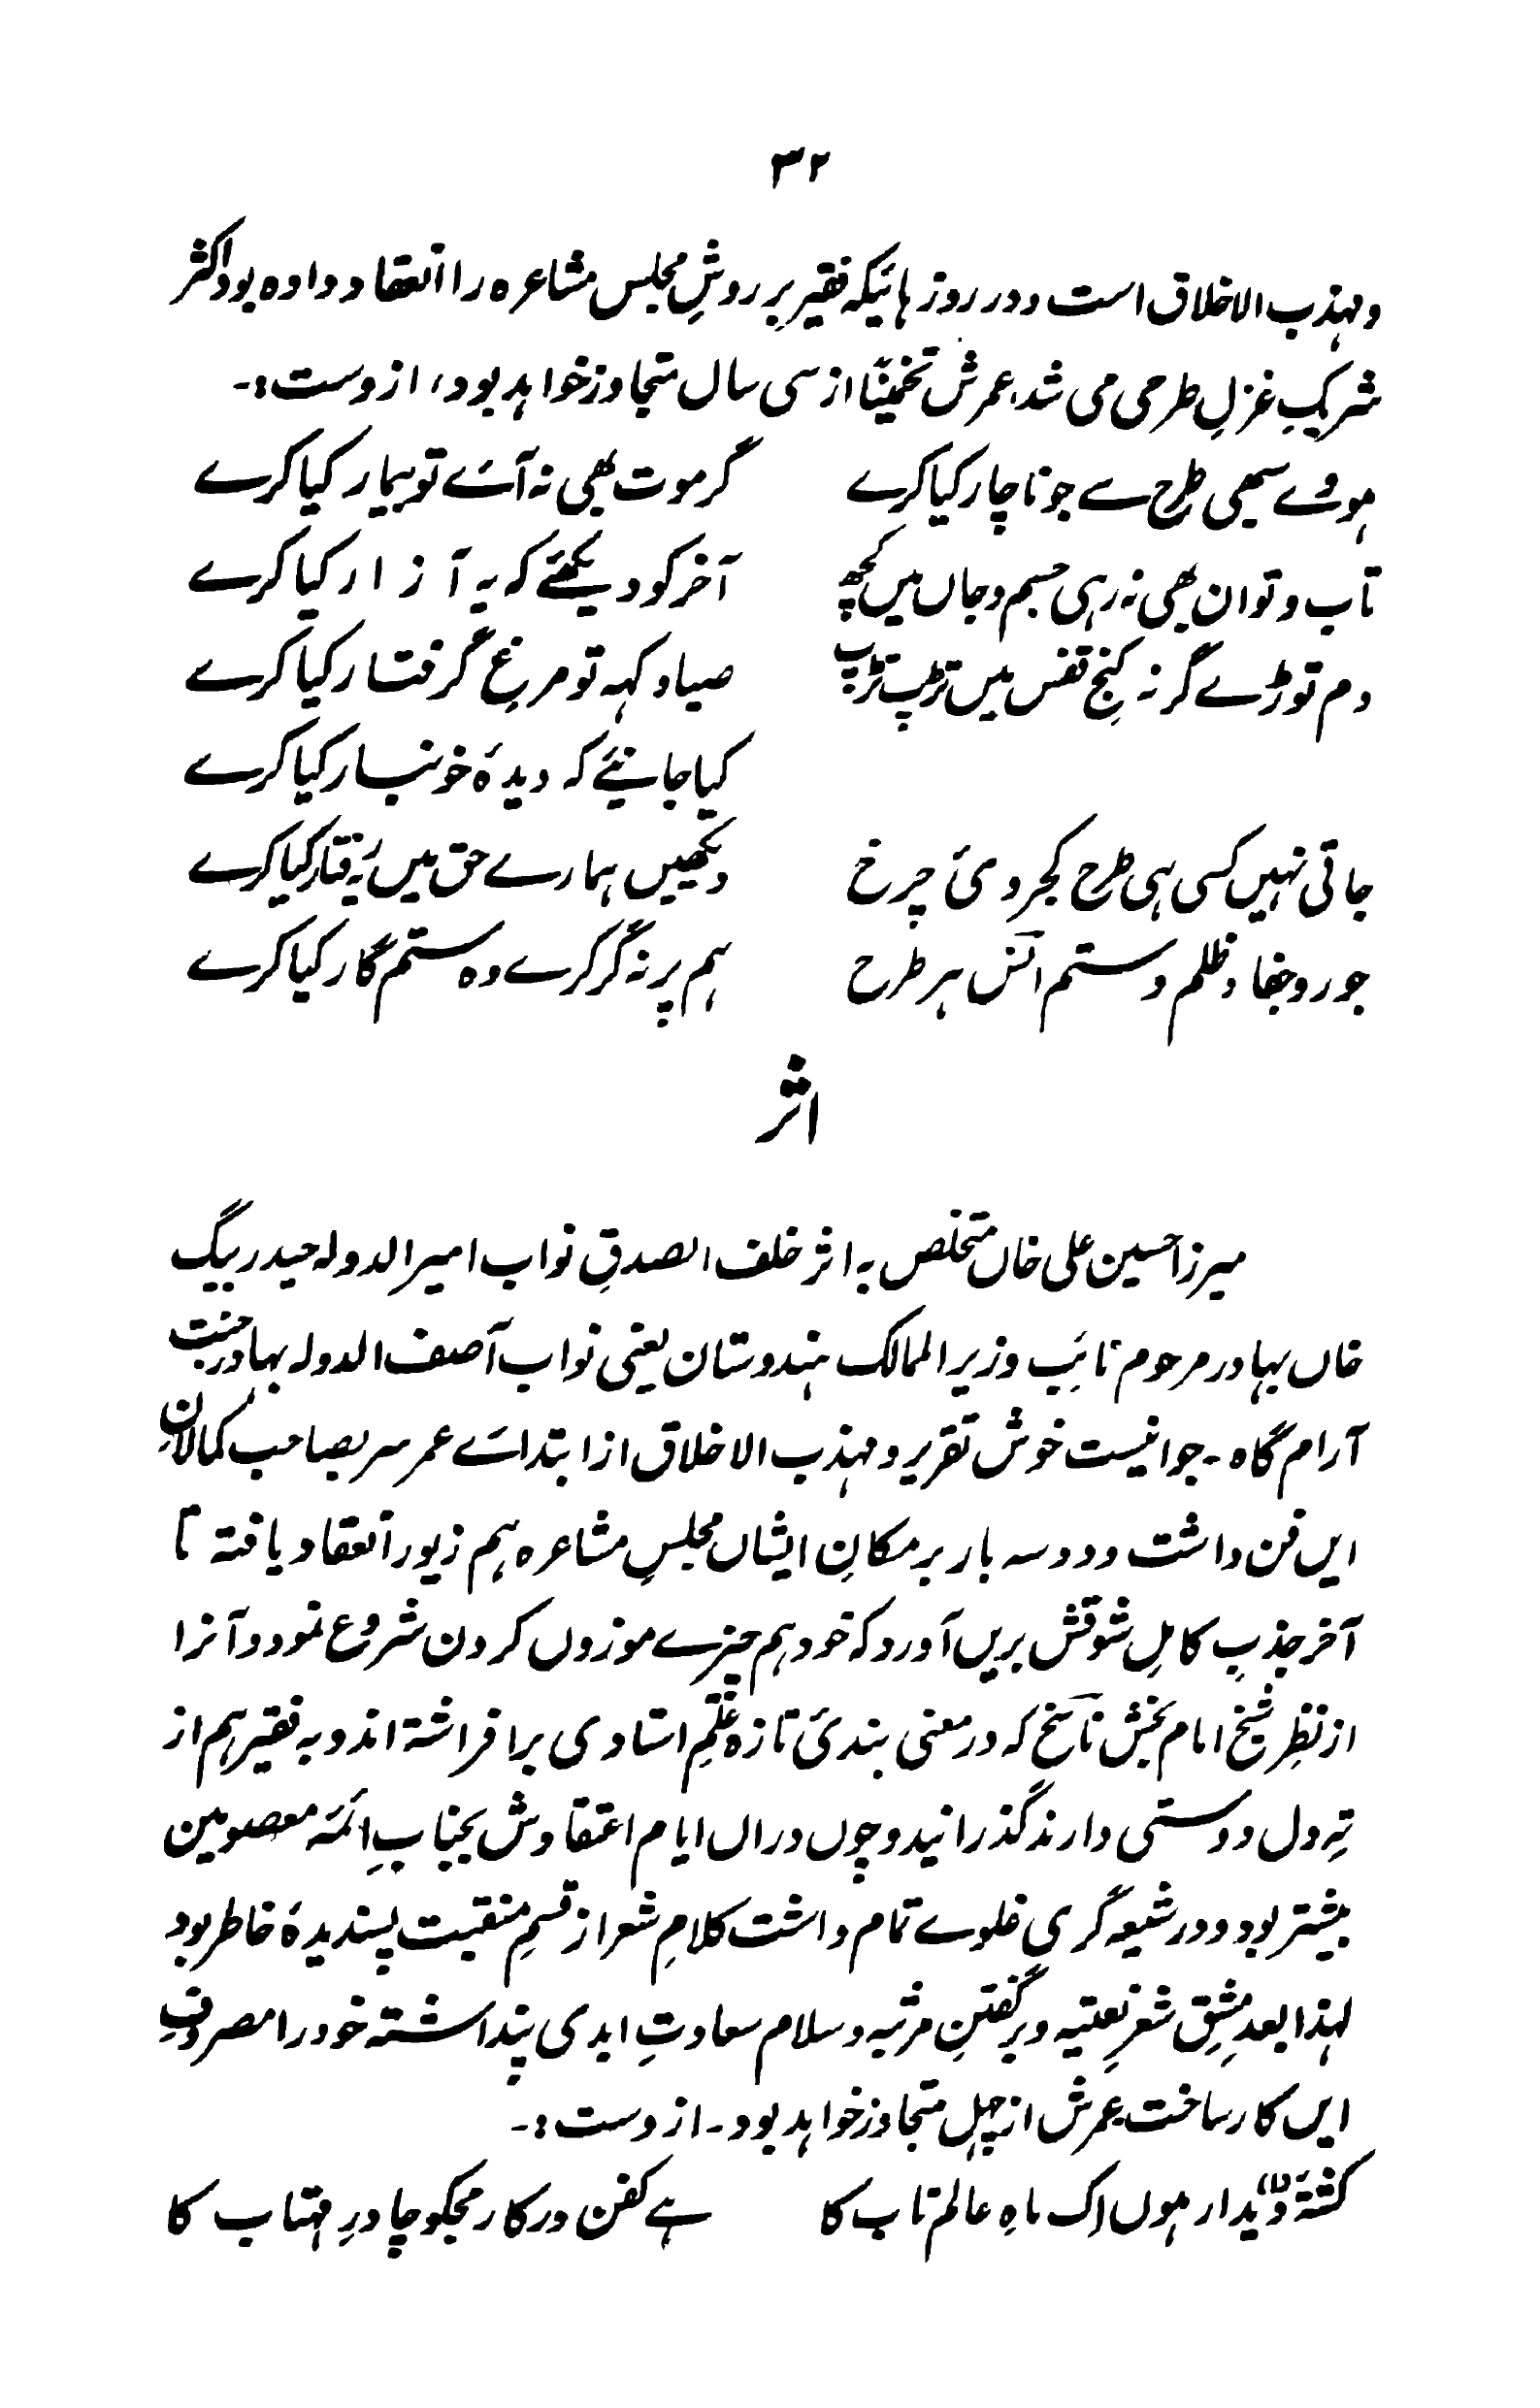 ۳۲
و مہذب الاخلاق است و در روز ہائیکہ فقیر بر روشِ مجلس مشاعرہ را انعقاد دادہ بود اکثر
شریکِ غزلِ طرحی می شد عمرش تخمیناً از سی سال متجاوز خواہد بود، از وست :-
ہووے سبھی طرح سے جو ناچار کیا کرے گر موت بھی نہ آئے تو بیمار کیا کرے
تاب و توان بھی نہ رہی جسم و جاں میں کچھ آخر کو دیکھئے کہ یہ آزار کیا کرے
دم توڑے گر نہ کنجِ قفس میں تڑپ تڑپ صیاد کہہ تو مرغِ گرفتار کیا کرے
کیا جانیئے کہ دیدۂ خونبار کیا کرے
جاتی نہیں کسی ہی طرح کجروئ چرخ دیکھیں ہمارے حق میں یہ رفتار کیا کرے
جور و جفا و ظلم و ستم انس ہر طرح ہم پر نہ گر کرے وہ ستم گار کیا کرے
اثر
میرزا حسین علی خاں متخلص بہ اثر خلف الصدقِ نواب امیر الدولہ حیدر بیگ
خاں بہادر مرحوم نائبِ وزیر الممالک ہندوستان یعنی نواب آصف الدولہ بہادر جنت
آرام گاہ - جوانیست خوش تقریر و مہذب الاخلاق از ابتدائے عمر سر بصاحب کمالانِ
ایں فن داشت و دو سہ بار بر مکانِ ایشاں مجلسِ مشاعرہ ہم زیور انعقاد یافتہ تا
آخر جذبِ کاملِ شوقش بریں آورد کہ خود ہم چیزے موزوں کردن شروع نمود و آنرا
از نظرِ شیخ امام بخش ناسخ کہ در معنی بندئ تازہ عَلَمِ استادی برافراشتہ اند و بہ فقیر ہم از
تہِ دل دوستی دارند گذرانید و چوں دراں ایام اعتقادش بجنابِ ائمہ معصومین
بیشتر بود و در شیعہ گری غلوے تمام داشت کلامِ شعر از قسمِ منقبت پسندیدۂ خاطر بود
لہذا بعدِ مشقِ شعر نعتیہ و بر گفتنِ مرثیہ و سلام سعادتِ ابدی پنداشتہ خود را مصروفِ
ایں کار ساخت عمرش از چہل متجاوز خواہد بود - از وست :-
کشتۂ دیدار ہوں اک ماہِ عالم تاب کا ہے کفن درکار مجکو چادرِ مہتاب کا